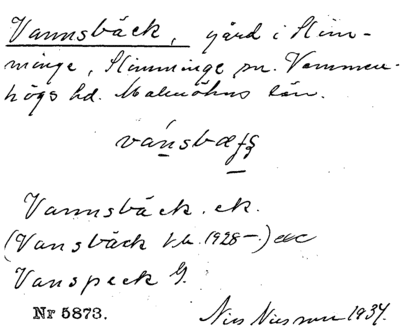 Vannsbäck, gård i Slim-
minge, Slimminge sn. Vemmen-
högs hd. Malmöhus län.
Vannsbäck. ek.
(Vansbäck fr. 1928–)
Vanspeck G.
Nr 5873. Nils Nilsson 1934.